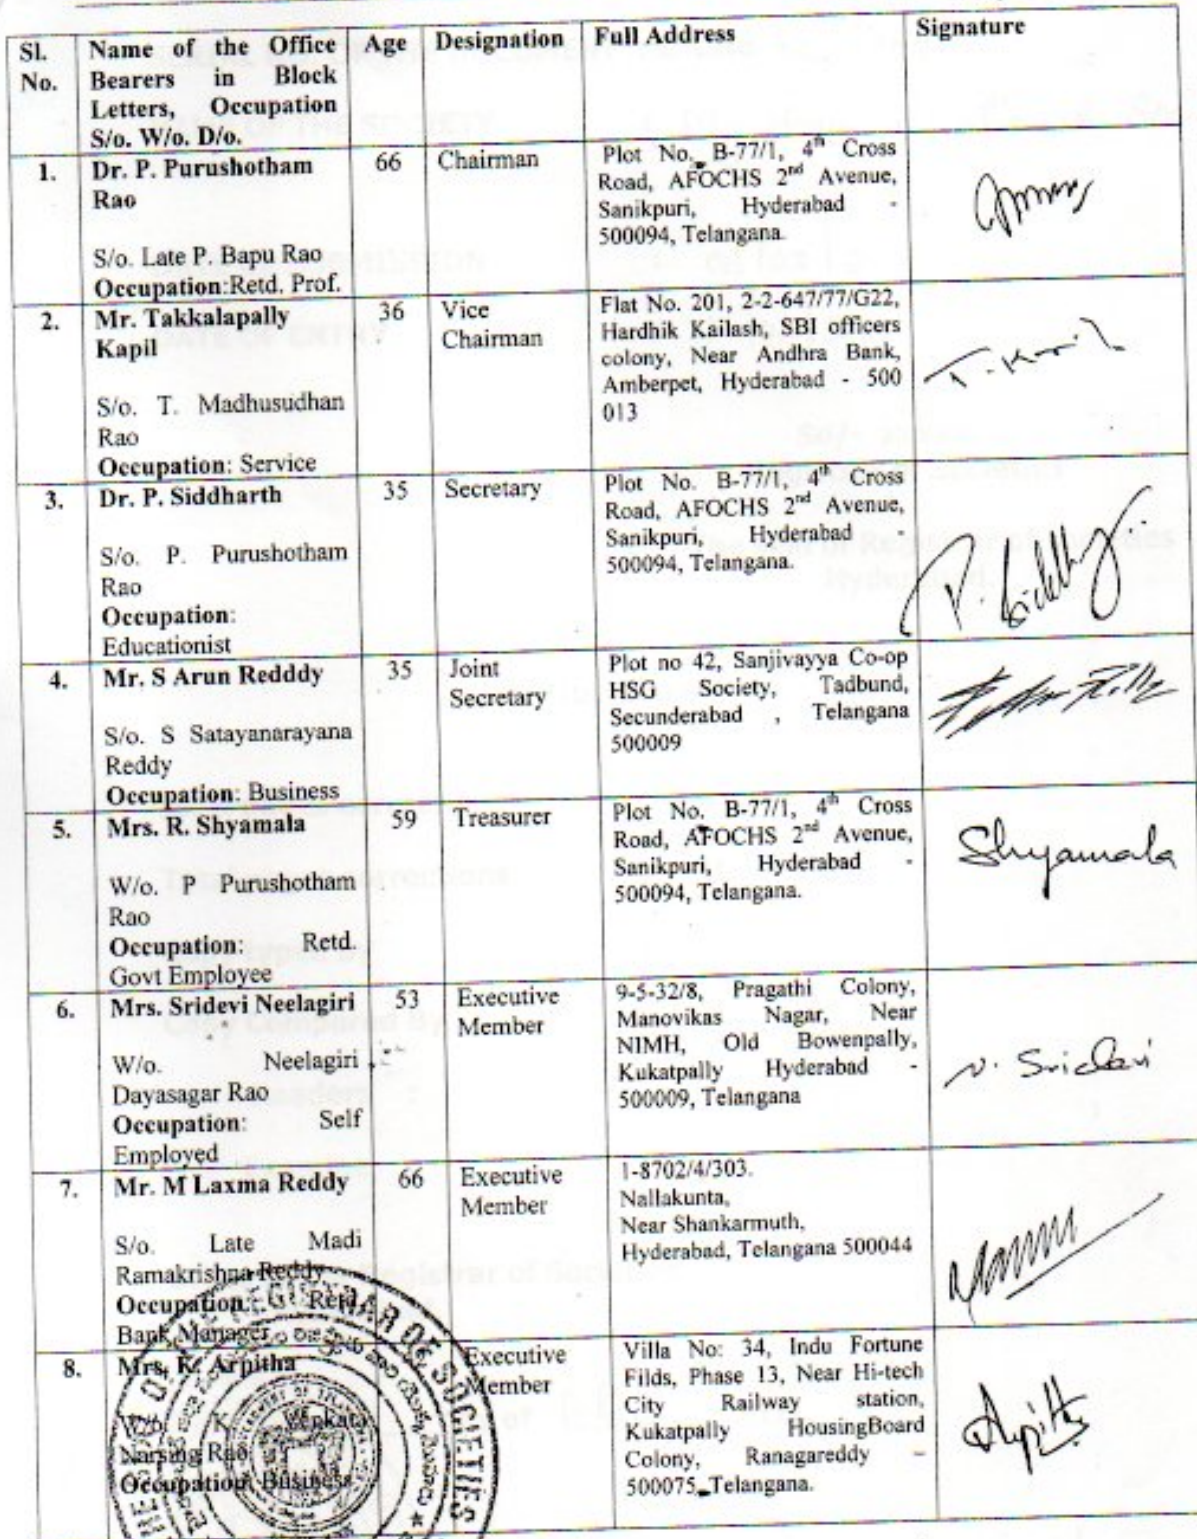 Sl. No.
Name of the Office
Bearers in Block
Letters, Occupation
S/o. W/o. D/o.
Age
Designation
Full Address
Signature
1.
Dr. P. Purushotham
Rao
S/o. Late P. Bapu Rao
Occupation:Retd. Prof.
66
Chairman
Plot No. B-77/1, 4th Cross
Road, AFOCHS 2nd Avenue,
Sanikpuri, Hyderabad -
500094, Telangana.
2.
Mr. Takkalapally
Kapil
S/o. T. Madhusudhan
Rao
Occupation: Service
36
Vice
Chairman
Flat No. 201, 2-2-647/77/G22,
Hardhik Kailash, SBI officers
colony, Near Andhra Bank,
Amberpet, Hyderabad - 500
013
3.
Dr. P. Siddharth
S/o. P. Purushotham
Rao
Occupation:
Educationist
35
Secretary
Plot No. B-77/1, 4th Cross
Road, AFOCHS 2nd Avenue,
Sanikpuri, Hyderabad -
500094, Telangana.
4.
Mr. S Arun Redddy
S/o. S Satayanarayana
Reddy
Occupation: Business
35
Joint
Secretary
Plot no 42, Sanjivayya Co-op
HSG Society, Tadbund,
Secunderabad , Telangana
500009
5.
Mrs. R. Shyamala
W/o. P Purushotham
Rao
Occupation: Retd.
Govt Employee
59
Treasurer
Plot No. B-77/1, 4th Cross
Road, AFOCHS 2nd Avenue,
Sanikpuri, Hyderabad -
500094, Telangana.
Shyamala
6.
Mrs. Sridevi Neelagiri
W/o. Neelagiri
Dayasagar Rao
Occupation: Self
Employed
53
Executive
Member
9-5-32/8, Pragathi Colony,
Manovikas Nagar, Near
NIMH, Old Bowenpally,
Kukatpally Hyderabad -
500009, Telangana
N. Sridevi
7.
Mr. M Laxma Reddy
S/o. Late Madi
Ramakrishna Reddy
Occupation: Retd.
Bank Manager
66
Executive
Member
1-8702/4/303.
Nallakunta,
Near Shankarmuth,
Hyderabad, Telangana 500044
8.
Mrs. K. Arpitha
W/o. K. Venkata
Narsing Rao
Occupation: Business
Executive
Member
Villa No: 34, Indu Fortune
Filds, Phase 13, Near Hi-tech
City Railway station,
Kukatpally HousingBoard
Colony, Ranagareddy –
500075, Telangana.
REGISTRAR OF SOCIETIES